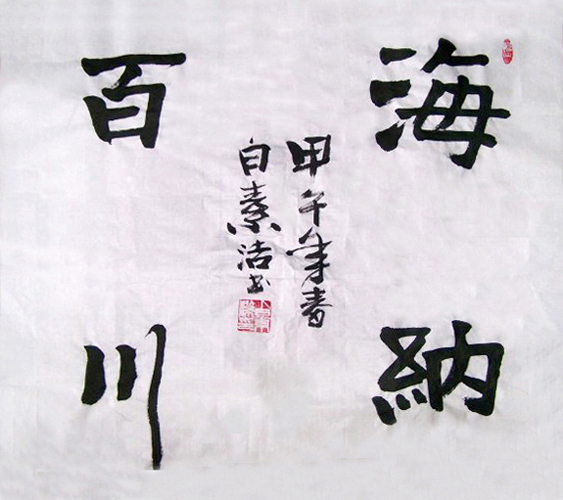 海納
百川
甲午年春
白素洁书